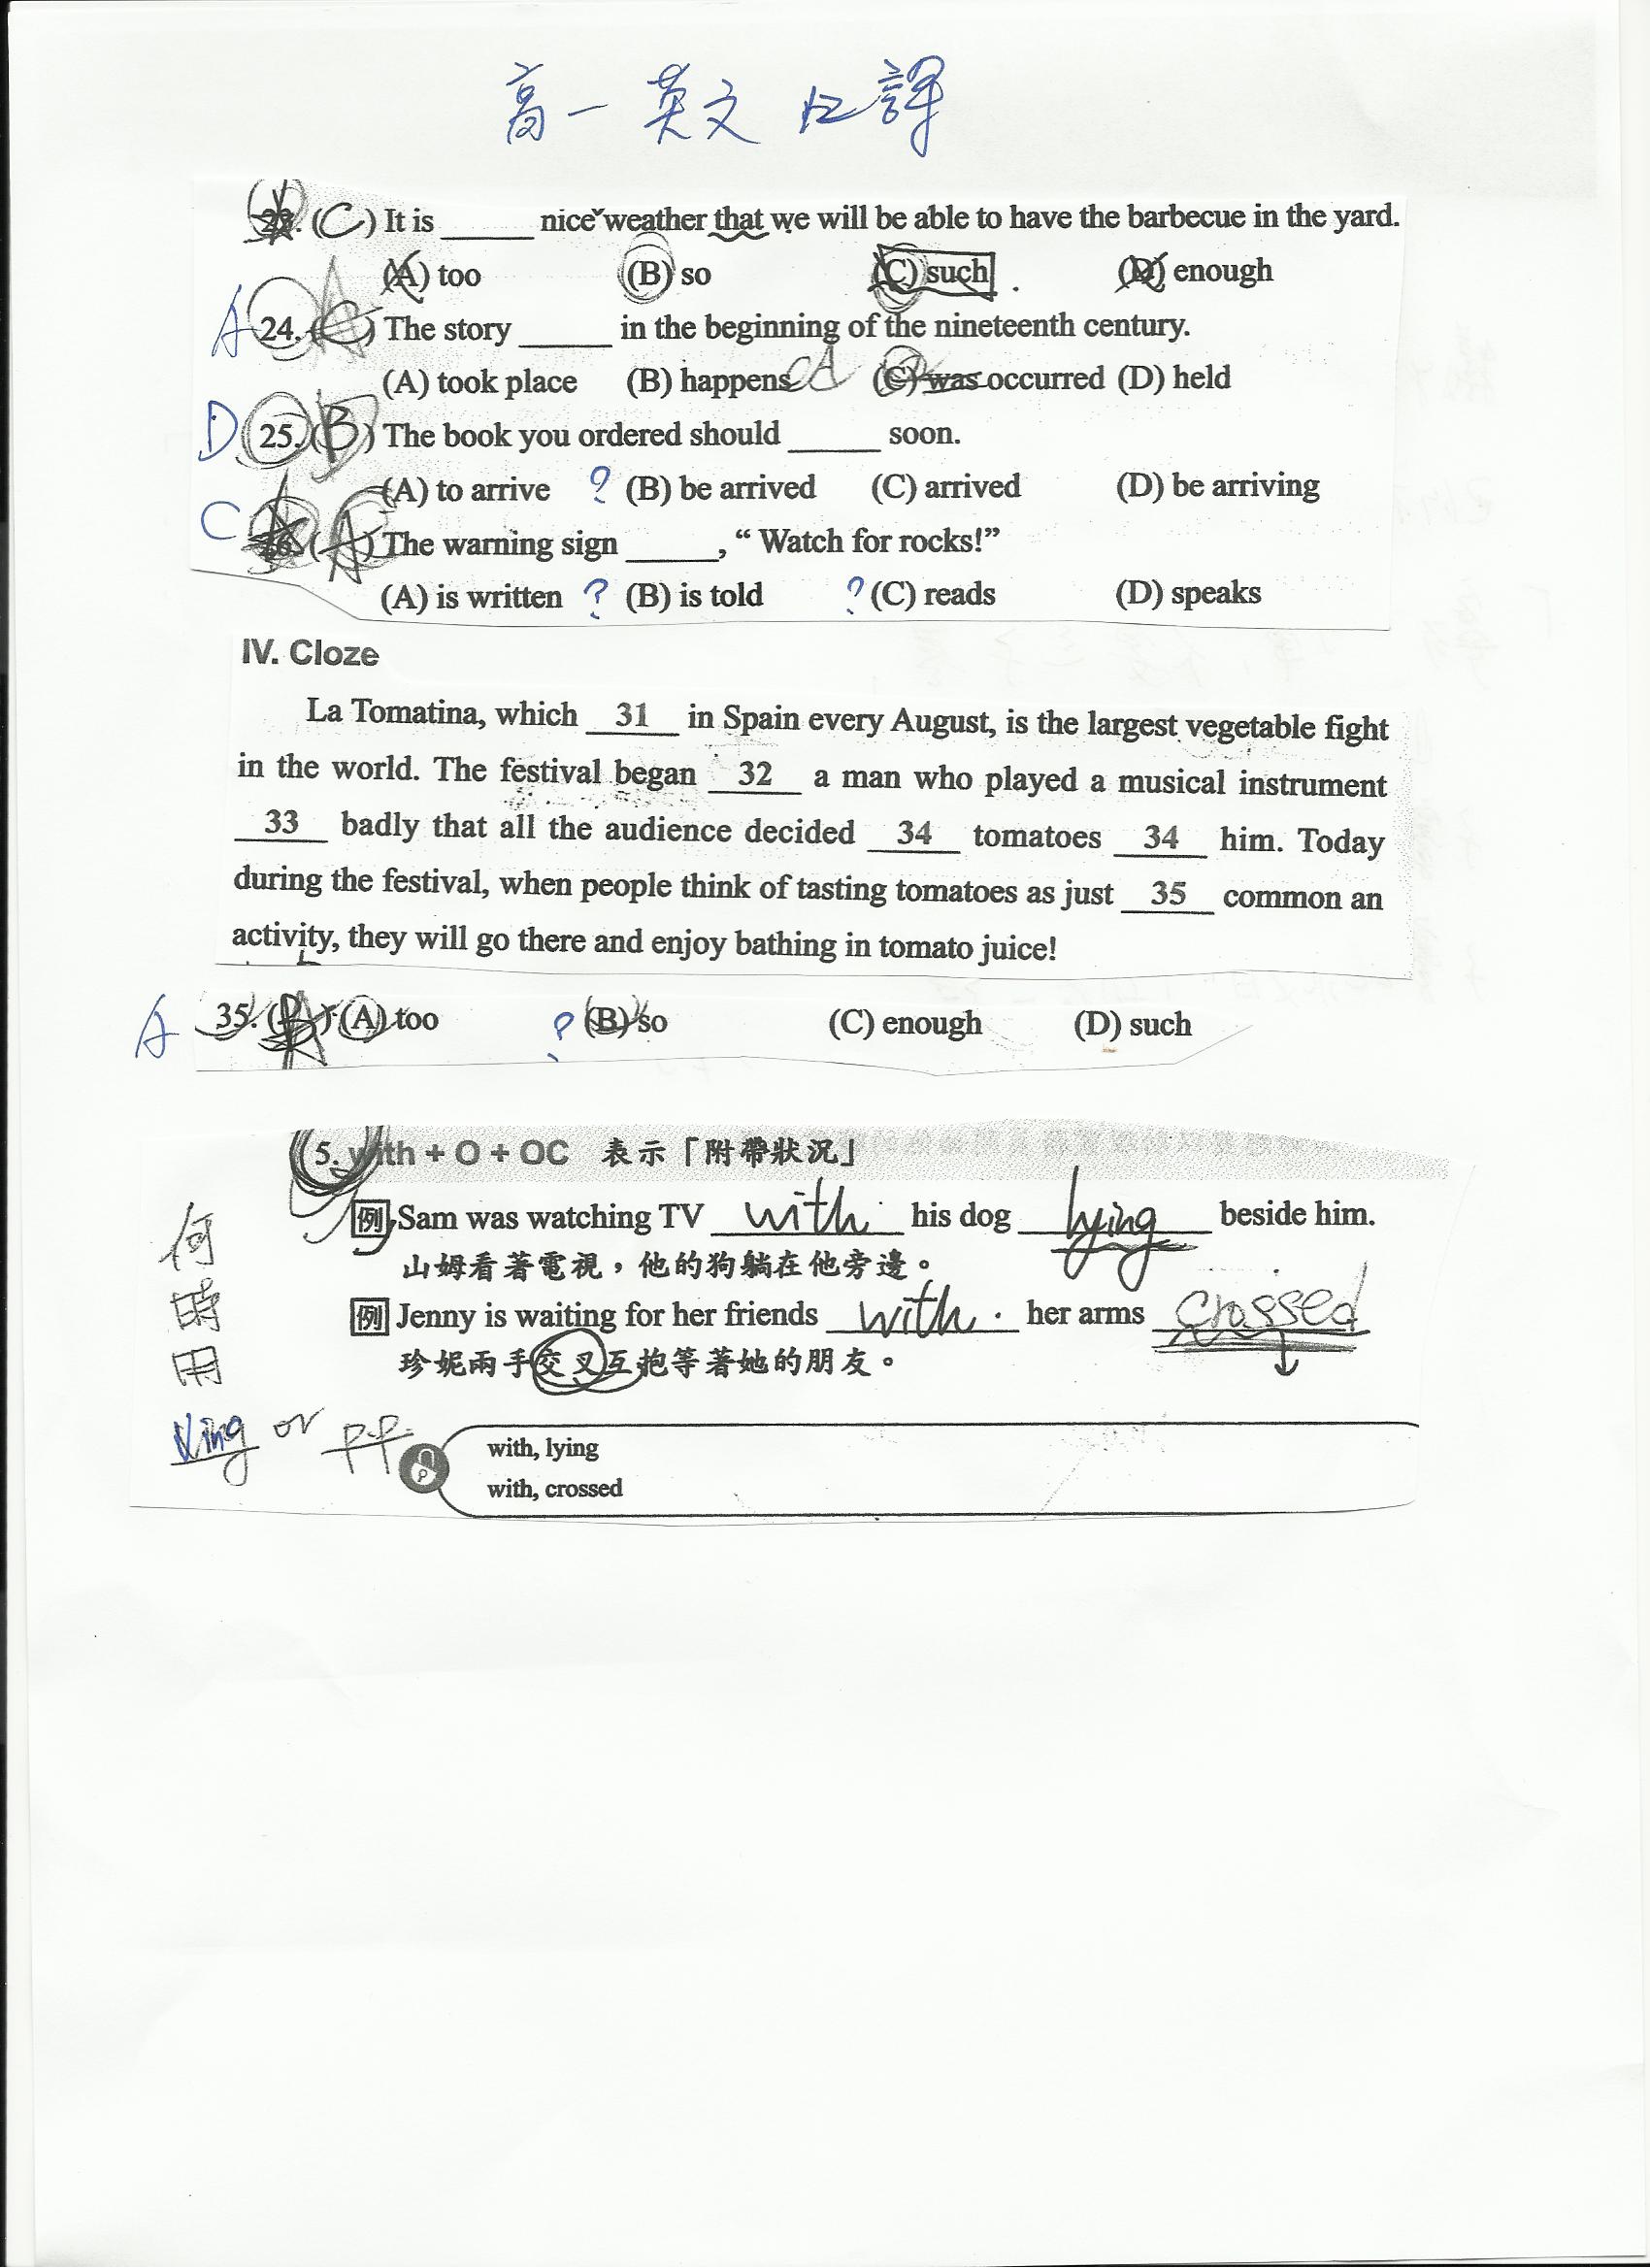 高一英文 口譯
23. (C) It is _____ nice weather that we will be able to have the barbecue in the yard.
(A) too (B) so (C) such (D) enough
A 24. (C) A The story _____ in the beginning of the nineteenth century.
(A) took place (B) happens A (C) was occurred (D) held
D 25. (B) The book you ordered should _____ soon.
(A) to arrive ? (B) be arrived (C) arrived (D) be arriving
C 26. (A) The warning sign _____, “ Watch for rocks!”
(A) is written ? (B) is told ? (C) reads (D) speaks
IV. Cloze
La Tomatina, which 31 in Spain every August, is the largest vegetable fight
in the world. The festival began 32 a man who played a musical instrument
33 badly that all the audience decided 34 tomatoes 34 him. Today
during the festival, when people think of tasting tomatoes as just 35 common an
activity, they will go there and enjoy bathing in tomato juice!
A 35. (A) too ? (B) so (C) enough (D) such
5. with + O + OC 表示「附帶狀況」
例 Sam was watching TV with his dog lying beside him.
山姆看著電視，他的狗躺在他旁邊。
例 Jenny is waiting for her friends with her arms crossed
珍妮兩手交叉互抱等著她的朋友。
何時用
Ving or P.P.
with, lying
with, crossed